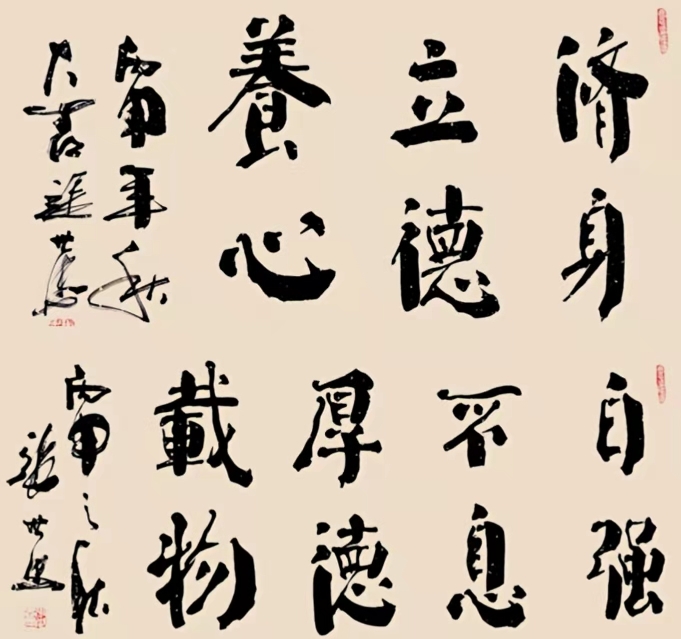 济身
立德
養心
丙申年秋
張世
自强
不息
厚德
載物
丙申之秋
張世